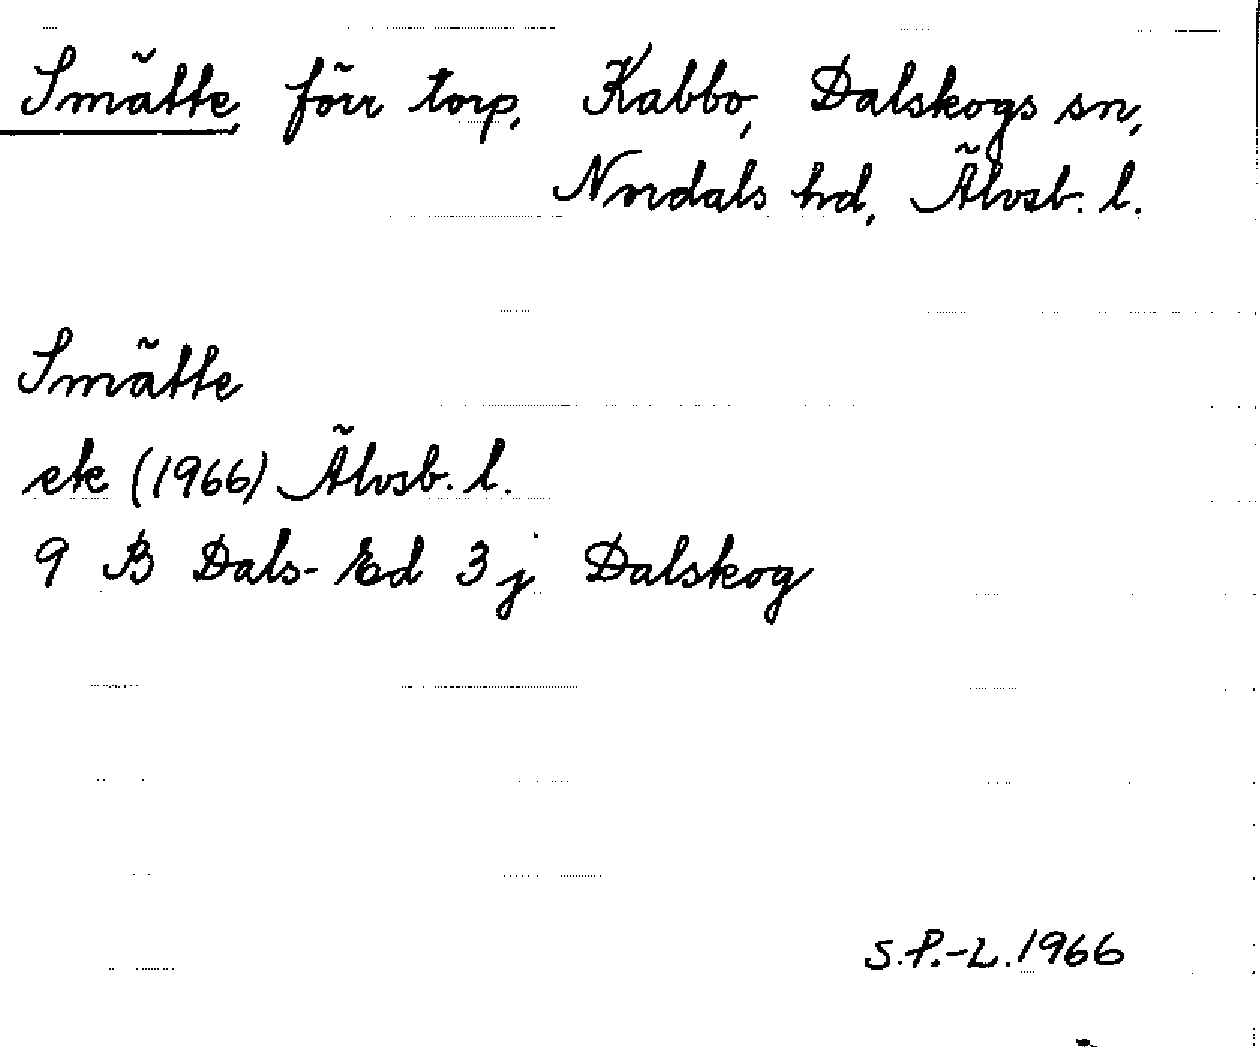 Smätte, förr torp, Kabbo, Dalskogs sn,
Nordals hd, Älvsb. l.
Smätte
ek (1966) Älvsb. l.
9 B Dals-Ed 3 j Dalskog
S.P.-L. 1966